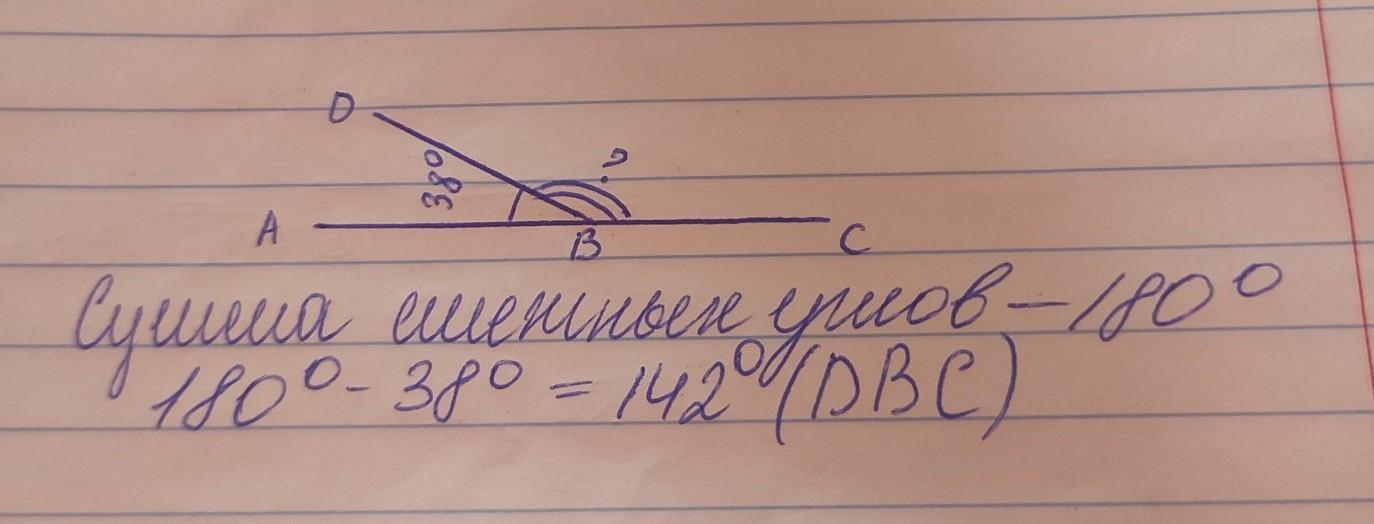 D
38°
?
A
B
C
Сумма смежных углов – 180°
180° - 38° = 142° (DBC)